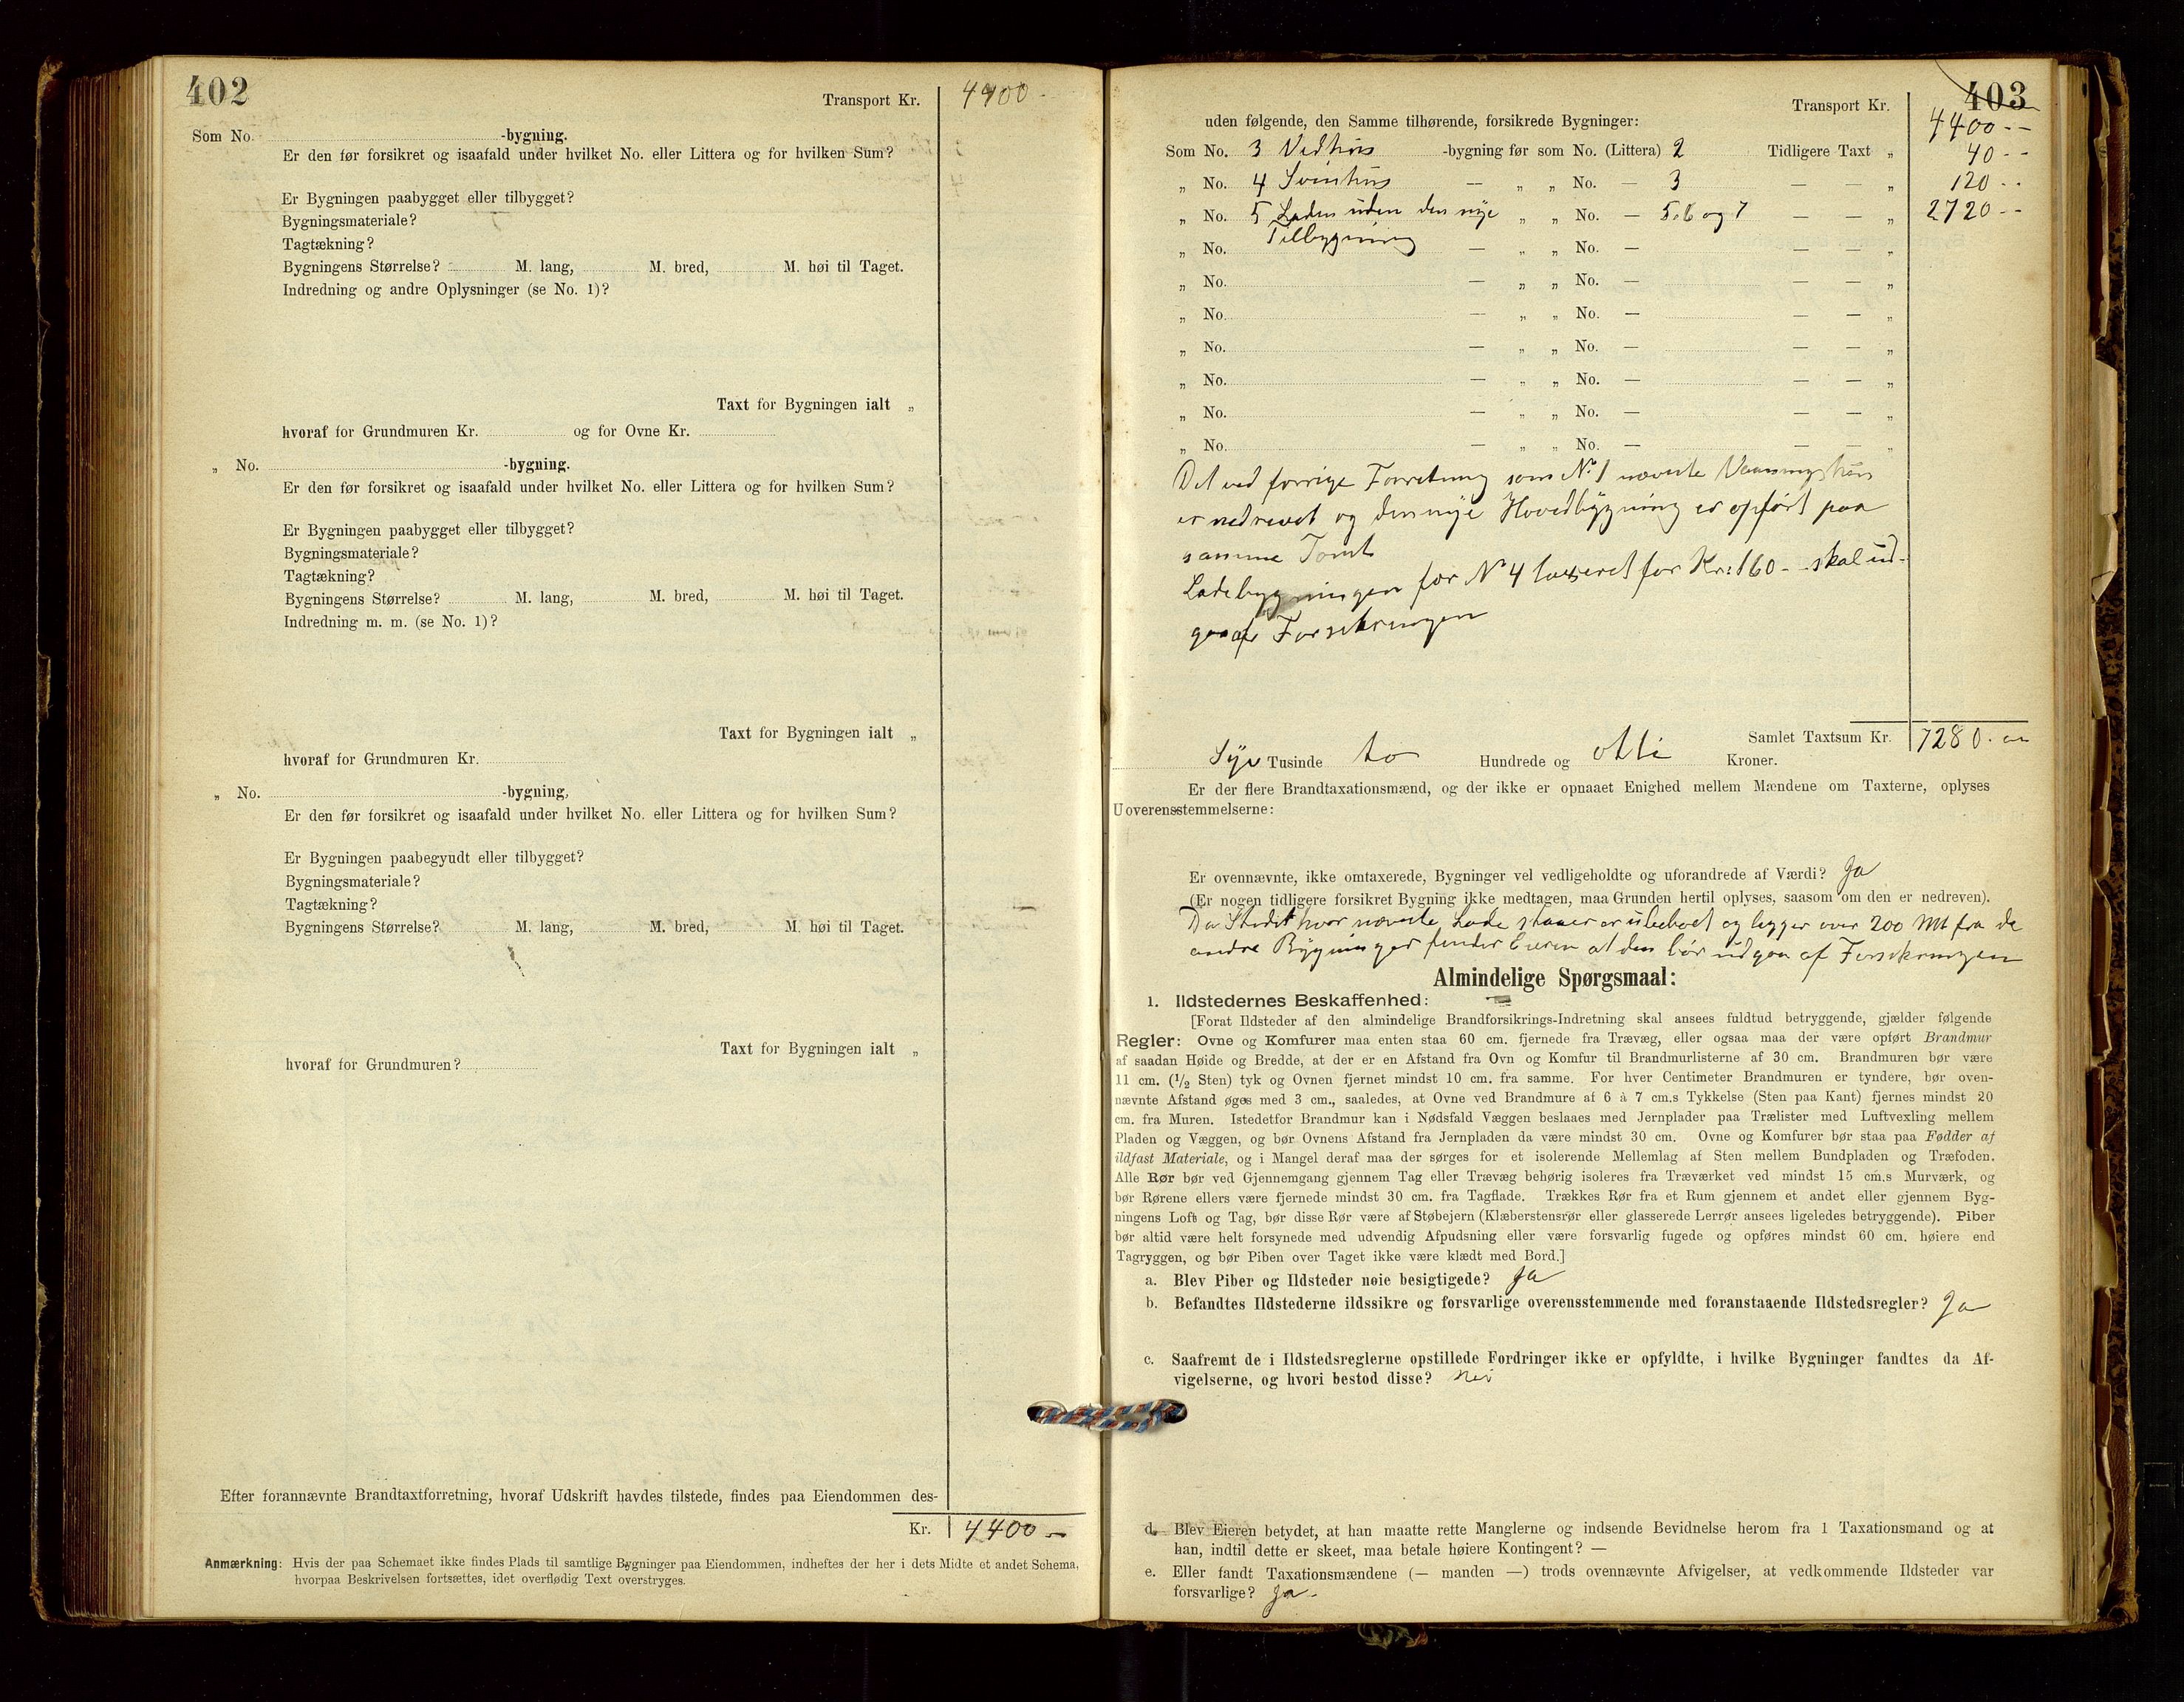 402
Transport Kr. 4400 -
Som No. -bygning.
Er den før forsikret og isaafald under hvilket No. eller Littera og for hvilken Sum?
Er Bygningen paabygget eller tilbygget?
Bygningsmateriale?
Tagtækning?
Bygningens Størrelse? M. lang, M. bred, M. høi til Taget.
Indredning og andre Oplysninger (se No. 1)?
Taxt for Bygningen ialt „
hvoraf for Grundmuren Kr. og for Ovne Kr.
„ No. -bygning.
Er den før forsikret og isaafald under hvilket No. eller Littera og for hvilken Sum?
Er Bygningen paabygget eller tilbygget?
Bygningsmateriale?
Tagtækning?
Bygningens Størrelse? M. lang, M. bred, M. høi til Taget.
Indredning m. m. (se No. 1)?
Taxt for Bygningen ialt „
hvoraf for Grundmuren Kr.
„ No. -bygning,
Er den før forsikret og isaafald under hvilket No. eller Littera og for hvilken Sum?
Er Bygningen paabegyndt eller tilbygget?
Bygningsmateriale?
Tagtækning?
Bygningens Størrelse? M. lang, M. bred, M. høi til Taget.
Taxt for Bygningen ialt „
hvoraf for Grundmuren?
Efter forannævnte Brandtaxtforretning, hvoraf Udskrift havdes tilstede, findes paa Eiendommen des-
Kr. 4400 -
Anmærkning: Hvis der paa Schemaet ikke findes Plads til samtlige Bygninger paa Eiendommen, indheftes der her i dets Midte et andet Schema,
hvorpaa Beskrivelsen fortsættes, idet overflødig Text overstryges.
403
Transport Kr. 4400 - -
uden følgende, den Samme tilhørende, forsikrede Bygninger:
Som No. 3 Vedhus -bygning før som No. (Littera) 2 Tidligere Taxt „ 40 - -
„ No. 4 Svinhus — „ „ No. — 3 — — „ 120 - -
„ No. 5 Laden uden den nye „ „ No. — 5, 6 og 7 — — „ 2720 - -
„ No. Tilbygning — „ „ No. — — — „
„ No. — „ „ No. — — — „
„ No. — „ „ No. — — — „
„ No. — „ „ No. — — — „
„ No. — „ „ No. — — — „
„ No. — „ „ No. — — — „
„ No. — „ „ No. — — — „
Det ved forrige Forretning som No 1 nævnte Vaaningshus
er nedrevet og den nye Hovedbygning er opført paa
samme Tomt
Ladebygningen før No 4 taxeret for Kr: 160 - skal ud-
gaa af Forsikringen
Samlet Taxtsum Kr. 7280 -
Syv Tusinde to Hundrede og otti Kroner.
Er der flere Brandtaxationsmænd, og der ikke er opnaaet Enighed mellem Mændene om Taxterne, oplyses
Uoverensstemmelserne:
Er ovennævnte, ikke omtaxerede, Bygninger vel vedligeholdte og uforandrede af Værdi? Ja
(Er nogen tidligere forsikret Bygning ikke medtagen, maa Grunden hertil oplyses, saasom om den er nedreven).
Da Stedet hvor nævnte Lade staaer er ubeboet og ligger over 200 Mt fra de
andre Bygninger finder Eieren at den bør udgaa af Forsikringen
Almindelige Spørgsmaal:
1. Ildstedernes Beskaffenhed:
[Forat Ildsteder af den almindelige Brandforsikrings-Indretning skal ansees fuldtud betryggende, gjælder følgende
Regler: Ovne og Komfurer maa enten staa 60 cm. fjernede fra Trævæg, eller ogsaa maa der være opført Brandmur
af saadan Høide og Bredde, at der er en Afstand fra Ovn og Komfur til Brandmurlisterne af 30 cm. Brandmuren bør være
11 cm. (1/2 Sten) tyk og Ovnen fjernet mindst 10 cm. fra samme. For hver Centimeter Brandmuren er tyndere, bør oven-
nævnte Afstand øges med 3 cm., saaledes, at Ovne ved Brandmure af 6 à 7 cm.s Tykkelse (Sten paa Kant) fjernes mindst 20
cm. fra Muren. Istedetfor Brandmur kan i Nødsfald Væggen beslaaes med Jernplader paa Trælister med Luftvexling mellem
Pladen og Væggen, og bør Ovnens Afstand fra Jernpladen da være mindst 30 cm. Ovne og Komfurer bør staa paa Fødder af
ildfast Materiale, og i Mangel deraf maa der sørges for et isolerende Mellemlag af Sten mellem Bundpladen og Træfoden.
Alle Rør bør ved Gjennemgang gjennem Tag eller Trævæg behørig isoleres fra Træværket ved mindst 15 cm.s Murværk, og
bør Rørene ellers være fjernede mindst 30 cm. fra Tagflade. Trækkes Rør fra et Rum gjennem et andet eller gjennem Byg-
ningens Loft og Tag, bør disse Rør være af Støbejern (Klæberstensrør eller glasserede Lerrør ansees ligeledes betryggende). Piber
bør altid være helt forsynede med udvendig Afpudsning eller være forsvarlig fugede og opføres mindst 60 cm. høiere end
Tagryggen, og bør Piben over Taget ikke være klædt med Bord.]
a. Blev Piber og Ildsteder nøie besigtigede? Ja
b. Befandtes Ildstederne ildssikre og forsvarlige overensstemmende med foranstaaende Ildstedsregler? Ja
c. Saafremt de i Ildstedsreglerne opstillede Fordringer ikke er opfyldte, i hvilke Bygninger fandtes da Af-
vigelserne, og hvori bestod disse? Nei
d. Blev Eieren betydet, at han maatte rette Manglerne og indsende Bevidnelse herom fra 1 Taxationsmand og at
han, indtil dette er skeet, maa betale høiere Kontingent? —
e. Eller fandt Taxationsmændene (— manden —) trods ovennævnte Afvigelser, at vedkommende Ildsteder var
forsvarlige? Ja -